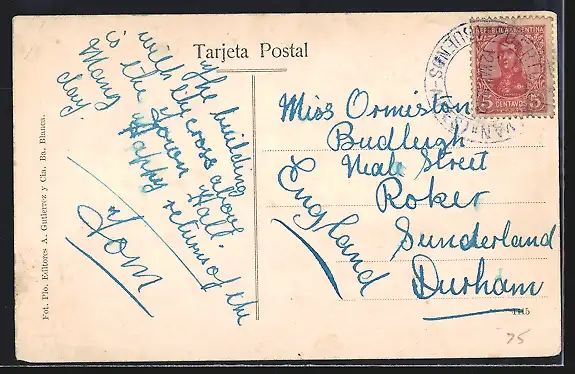 Tarjeta Postal
The building
with the cross above
is the Town Hall.
Many Happy returns of the
day.
Tom
Miss Ormiston
Budleigh
Neale Street
Roker
Sunderland
Durham
England
REPUBLICA ARGENTINA
5 CENTAVOS 5
BUENOS
Fot. Plo. Editores A. Gutierrez y Cía. Ba. Blanca.
75